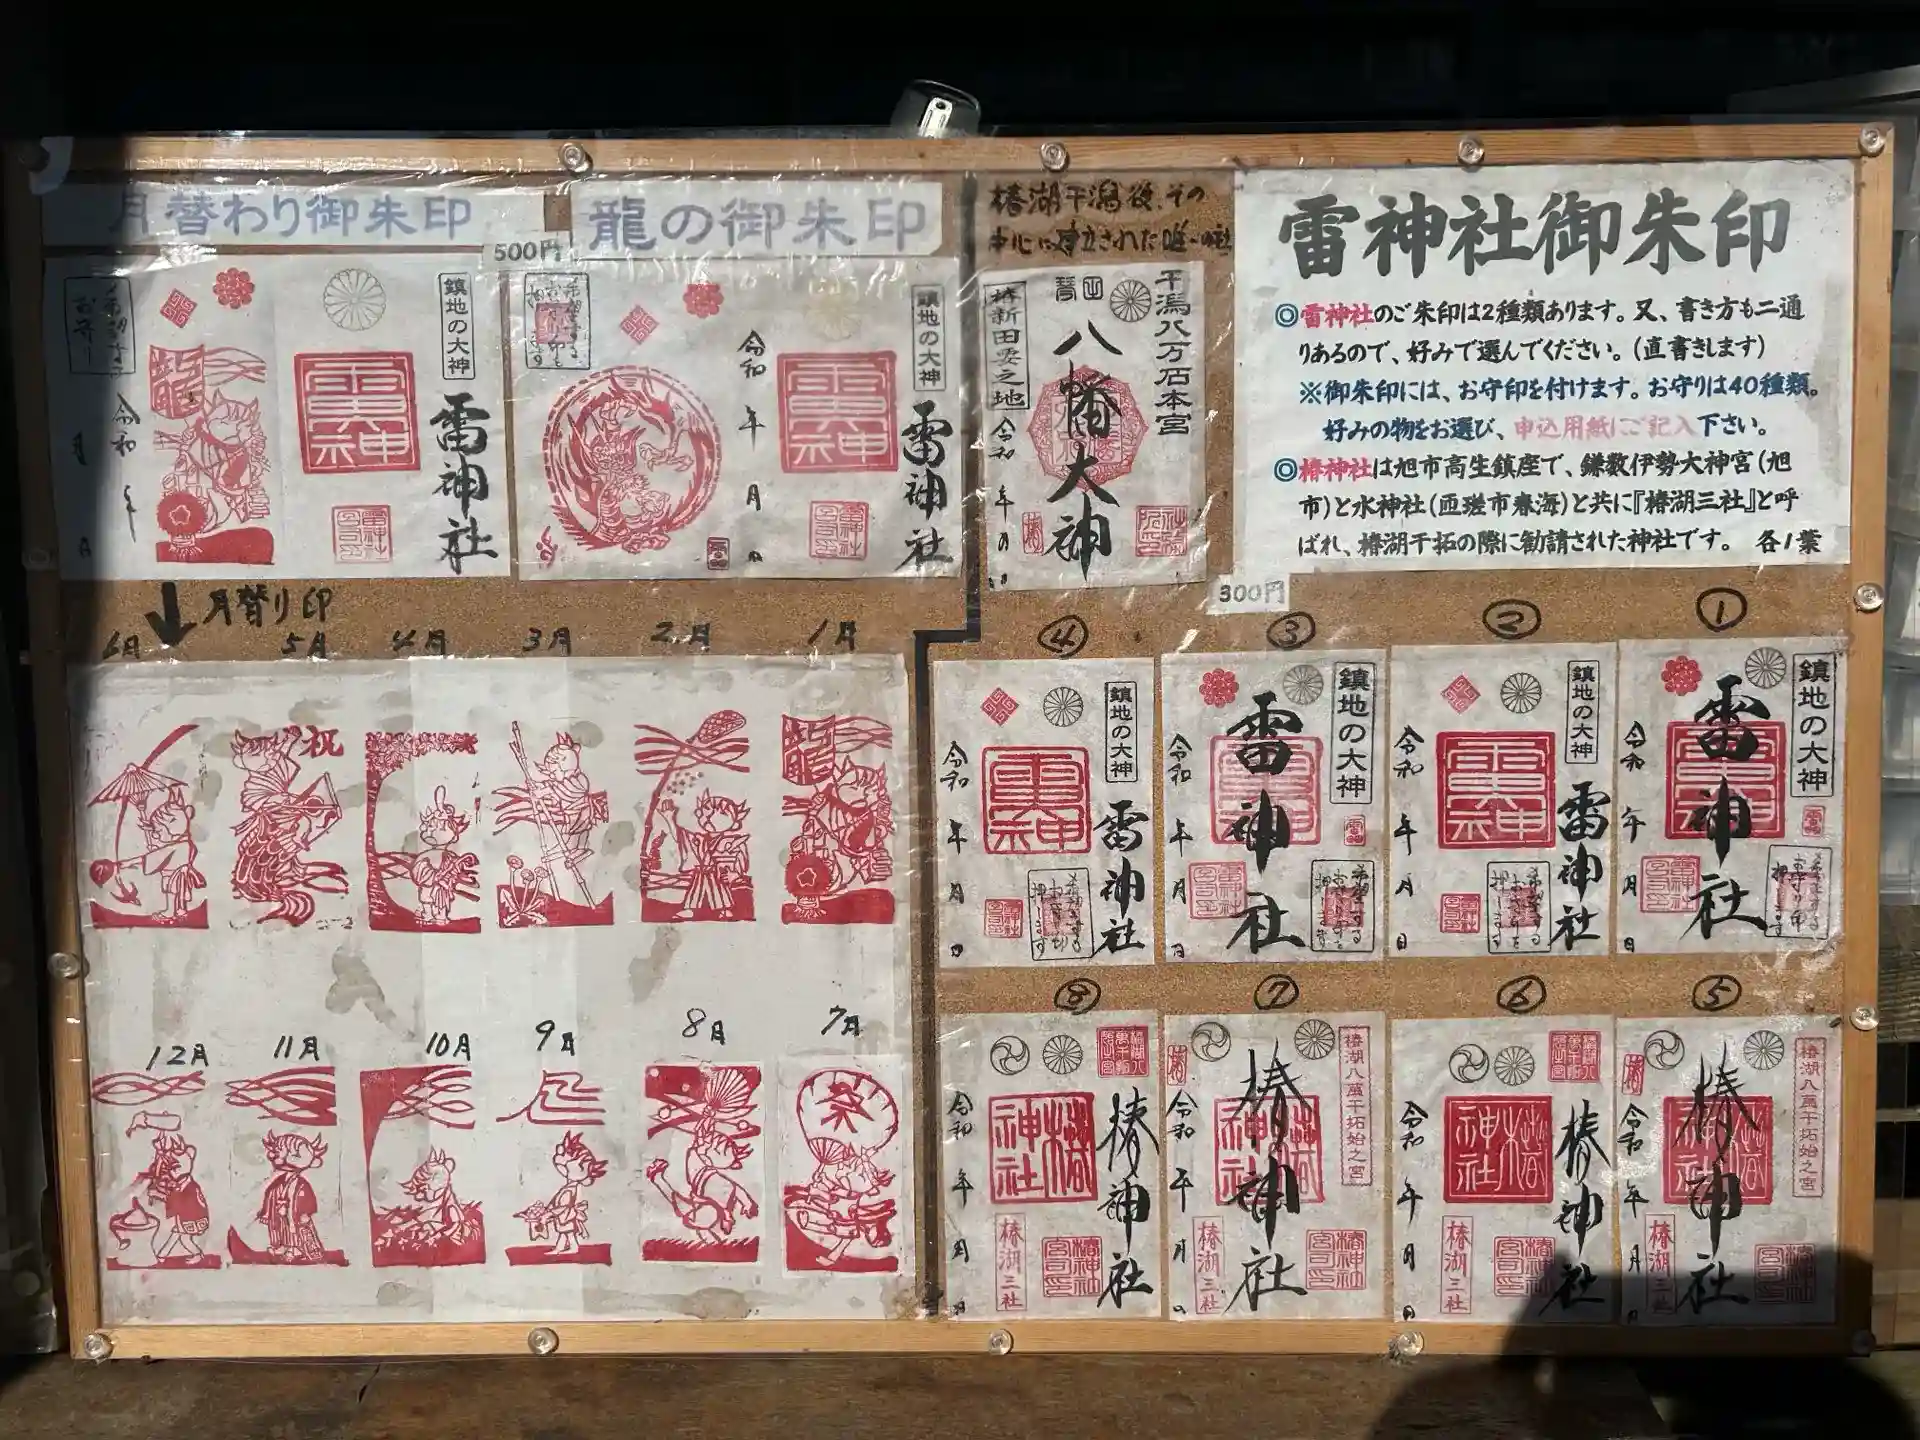 月替わり御朱印
500円
龍の御朱印
椿湖干潟後、その
中心に建立された唯一の社
雷神社御朱印
◎雷神社のご朱印は2種類あります。又、書き方も二通
りあるので、好みで選んでください。(直書きします)
※御朱印には、お守印を付けます。お守りは40種類。
好みの物をお選び、申込用紙にご記入下さい。
◎椿神社は旭市高生鎮座で、鎌数伊勢大神宮(旭
市)と水神社(匝瑳市春海)と共に『椿湖三社』と呼
ばれ、椿湖干拓の際に勧請された神社です。 各1葉
300円
鎮地の大神
雷神社
龍
令和 年 月 日
鎮地の大神
雷神社
令和 年 月 日
干潟八万石本宮
八幡大神
椿新田要之地
令和 年 月 日
月替り印
1月
2月
3月
4月
5月
6月
龍
祝
7月
8月
9月
10月
11月
12月
祭
①
鎮地の大神
雷神社
令和 年 月 日
②
鎮地の大神
雷神社
令和 年 月 日
③
鎮地の大神
雷神社
令和 年 月 日
④
鎮地の大神
雷神社
令和 年 月 日
⑤
椿湖八萬干拓始之宮
椿神社
椿湖三社
令和 年 月 日
⑥
椿神社
椿湖三社
令和 年 月 日
⑦
椿湖八萬干拓始之宮
椿神社
椿湖三社
令和 年 月 日
⑧
椿神社
椿湖三社
令和 年 月 日